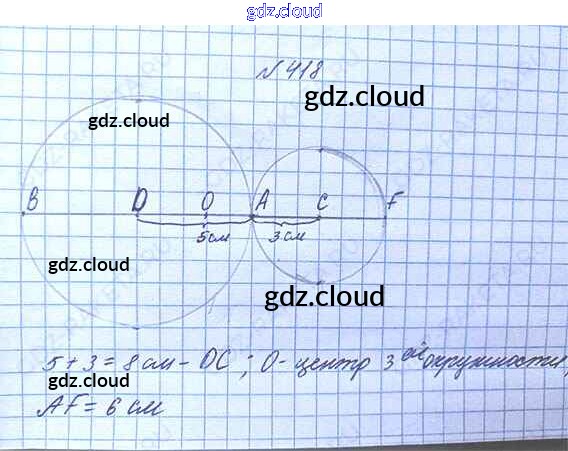 gdz.cloud
№ 418
gdz.cloud
gdz.cloud
B D O A C F
5 см 3 см
gdz.cloud
gdz.cloud
5 + 3 = 8 см - DC ; O - центр 3 ей окружности,
gdz.cloud
AF = 6 см